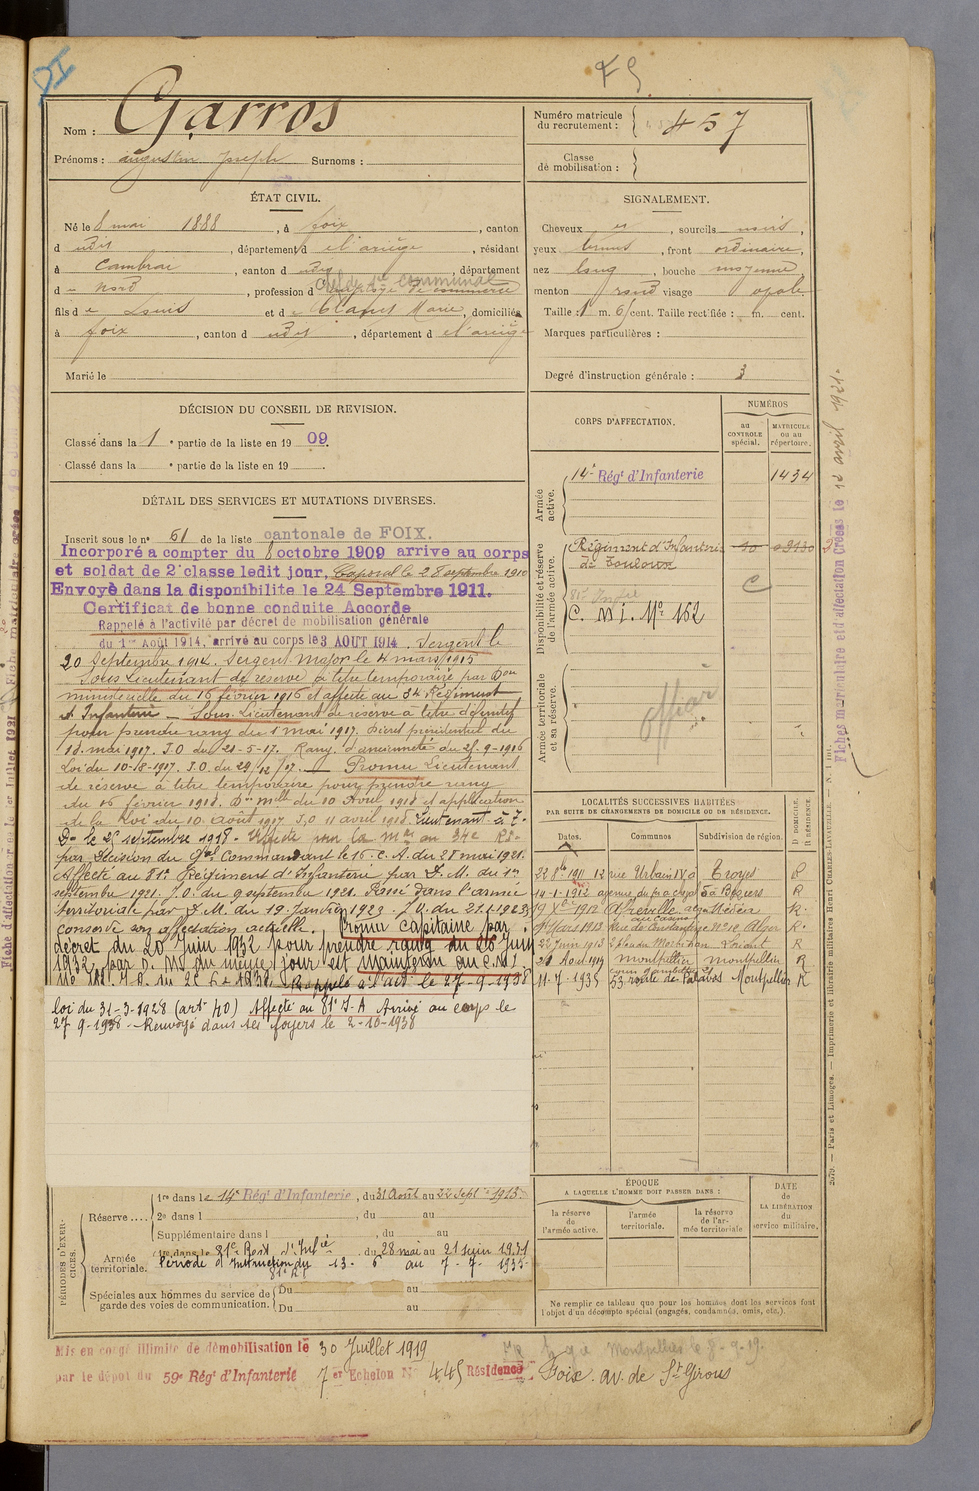 F S
Nom : Garros
Prénoms : augustin Joseph Surnoms :
Numéro matricule du recrutement : 457
Classe de mobilisation :
ÉTAT CIVIL.
Né le 8 mai 1888, à foix, canton
d udit, département d e l'ariège, résidant
à Cambrai, canton d udit, département
d u Nord, profession d Employé de commerce
fils d e Louis et d e Marie, domiciliés
à foix, canton d udit, département d e l'ariège
Marié le
SIGNALEMENT.
Cheveux et, sourcils noirs,
yeux bruns, front ordinaire,
nez long, bouche moyenne,
menton rond visage ovale.
Taille : 1 m. 61 cent. Taille rectifiée : m. cent.
Marques particulières :
Degré d'instruction générale : 3
DÉCISION DU CONSEIL DE REVISION.
Classé dans la 1e partie de la liste en 1909.
Classé dans la e partie de la liste en 19 .
DÉTAIL DES SERVICES ET MUTATIONS DIVERSES.
Inscrit sous le n° 61 de la liste cantonale de FOIX.
Incorporé a compter du 8 octobre 1909 arrive au corps
et soldat de 2e classe ledit jour, Caporal le 28 septembre 1910
Envoyé dans la disponibilite le 24 Septembre 1911.
Certificat de bonne conduite Accorde
Rappelé à l'activité par décret de mobilisation générale
du 1er Août 1914, arrivé au corps le 3 AOUT 1914. Sergent le
20 Septembre 1914. Sergent Major le 4 mars 1915
Sous Lieutenant de réserve à titre temporaire par Don
ministérielle du 16 février 1916 et affecté au 34 Régiment
d'Infanterie _ Sous-Lieutenant de réserve à titre définitif
pour prendre rang du 1 mai 1917. Décret présidentiel du
18 mai 1917. J.O du 21-5-17. Rang d'ancienneté du 25-9-1916
Loi du 10-8-1917. J.O. du 29/12/17. _ Promu Lieutenant
de réserve à titre temporaire pour prendre rang
du 16 février 1918. Dn mlle du 10 Avril 1918 et application
de la Loi du 10 août 1917 J.O 11 avril 1918. Lieutenant à T.
D. le 25 septembre 1918. Affecté pour la mon au 34e RI
par Décision du Gal Commandant le 16e C.A. du 28 mai 1921.
Affecté au 81e Régiment d'Infanterie par D.M. du 1er
septembre 1921. J.O. du 9 septembre 1921. Passé dans l'armée
territoriale par D.M. du 19 Janvier 1923. J.O. du 21-1-1923
conserve son affectation actuelle. Promu capitaine par
décret du 20 Juin 1932 pour prendre rang du 26 Juin
1932, par D. M. du même jour est maintenu au C.M.I.
Rappelé à l'act. le 27-9-1938
loi du 31-3-1928 (art 40) Affecté au 81e I-A Arrivé au corps le
27-9-1938 - Renvoyé dans ses foyers le 2-10-1938
CORPS D'AFFECTATION.
NUMÉROS
au CONTROLE spécial.
MATRICULE ou au répertoire.
Armée active.
14e Régt d'Infanterie 1434
Disponibilité et réserve de l'armée active.
Régiment d'Infanterie de Toulouse
81e Infie
C. M I. No 162
Armée territoriale et sa réserve.
officier
LOCALITÉS SUCCESSIVES HABITÉES
PAR SUITE DE CHANGEMENTS DE DOMICILE OU DE RÉSIDENCE.
Dates. Communes Subdivision de région. D DOMICILE. R RÉSIDENCE.
22 8bre 1911 12 rue Urbain IV à Troyes R
14-1-1912 Béziers R
19 Xbre 1912 Affreville Médéa R.
1er Mars 1913 Rue de Constantine No 10 Alger R.
22 Juin 1913 2 place du Morbihan Lorient R
21 Août 1919 Montpellier Montpellier R
11-7-1935 53 route de Palavas Montpellier R
PÉRIODES D'EXERCICES.
Réserve .... 1re dans le 14e Régt d'Infanterie, du 31 Août au 22 Sept 1913.
2e dans l , du au
Supplémentaire dans l , du au
Armée territoriale. 1re dans le 81e Regt d'Infie du 28 mai au 21 juin 1931
Période d'Instruction du 13-6 au 7-7-1935
81e RI
Spéciales aux hommes du service de garde des voies de communication. Du au
Du au
ÉPOQUE
A LAQUELLE L'HOMME DOIT PASSER DANS :
la réserve de l'armée active.
l'armée territoriale.
la réserve de l'armée territoriale
DATE de LA LIBÉRATION du service militaire.
Ne remplir ce tableau que pour les hommes dont les services font
l'objet d'un décompte spécial (engagés, condamnés, omis, etc.).
Mis en congé illimité de démobilisation le 30 Juillet 1919
par le dépot du 59e Régt d'Infanterie 7er Echelon No 445 Résidence Foix. av. de St Girons
Montpellier le 8-9-19.
Fiches matriculaire et d'affectation Créées le 12 avril 1921.
2679. — Paris et Limoges. — Imprimerie et librairie militaires Henri CHARLES-LAVAUZELLE. — N. 1 int.